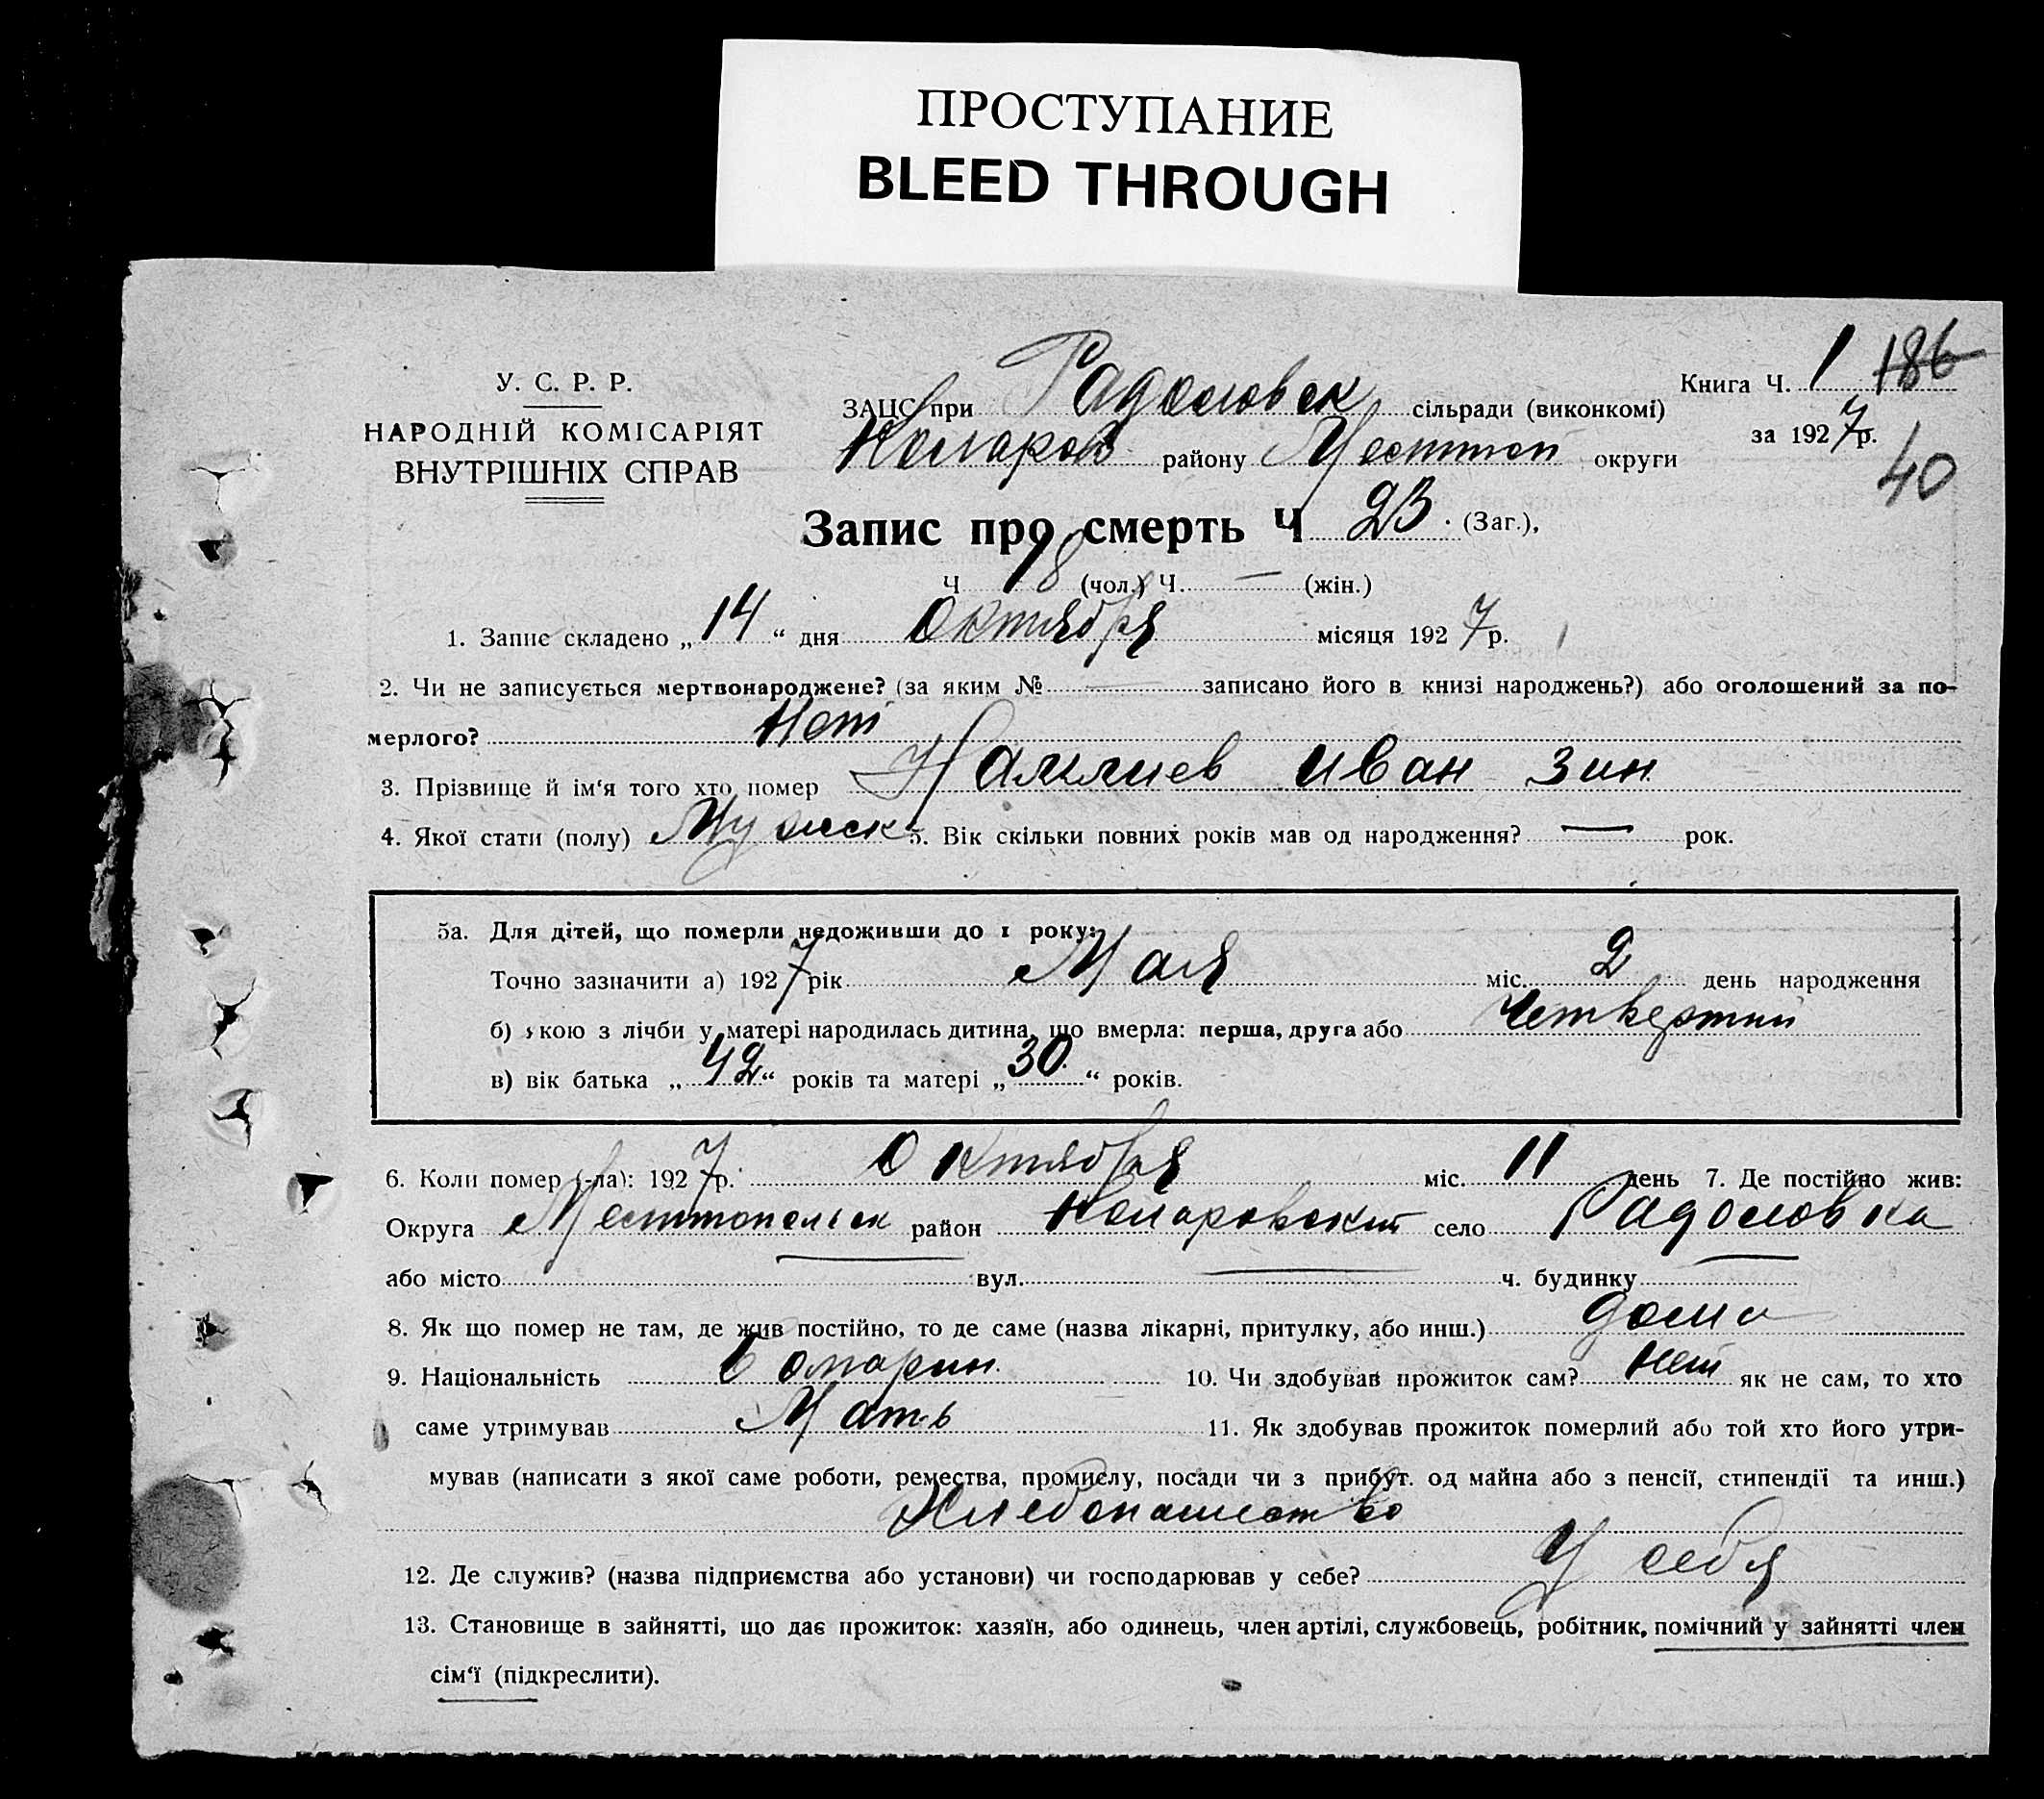 ПРОСТУПАНИЕ
BLEED THROUGH
У. С. Р. Р.
НАРОДНІЙ КОМІСАРІЯТ
ВНУТРІШНІХ СПРАВ
Книга Ч. 1 186
за 1927 р.
40
ЗАЦС при Радоловск сільради (виконкомі)
району округи
Запис про смерть Ч 23. (Заг.),
Ч 18 (чол.) Ч. — (жін.)
1. Запис складено „ 14 “ дня Октября місяця 1927 р.
2. Чи не записується мертвонароджене? (за яким № — записано його в книзі народжень?) або оголошений за по-
мерлого? Нет
3. Прізвище й ім‘я того хто помер Иван Зин
4. Якої стати (полу) Мужск 5. Вік скільки повних років мав од народження? — рок.
5а. Для дітей, що померли недоживши до 1 року:
Точно зазначити а) 1927 рік Мая міс. 2 день народження
б) якою з лічби у матері народилась дитина, що вмерла: перша, друга або Четвертий
в) вік батька „ 42 “ років та матері „ 30 “ років.
6. Коли помер (-ла): 1927 р. Октября міс. 11 день 7. Де постійно жив:
Округа район село Радоловка
або місто — вул. — ч. будинку —
8. Як що помер не там, де жив постійно, то де саме (назва лікарні, притулку, або инш.) дома
9. Національність Болгарин. 10. Чи здобував прожиток сам? Нет як не сам, то хто
саме утримував Мать 11. Як здобував прожиток померлий або той хто його утри-
мував (написати з якої саме роботи, ремества, промислу, посади чи з прибут. од майна або з пенсії, стипендії та инш.)
Хлебопашество
12. Де служив? (назва підприємства або установи) чи господарював у себе? У себя
13. Становище в зайнятті, що дає прожиток: хазяїн, або одинець, член артілі, службовець, робітник, помічний у зайнятті член
сім‘ї (підкреслити).